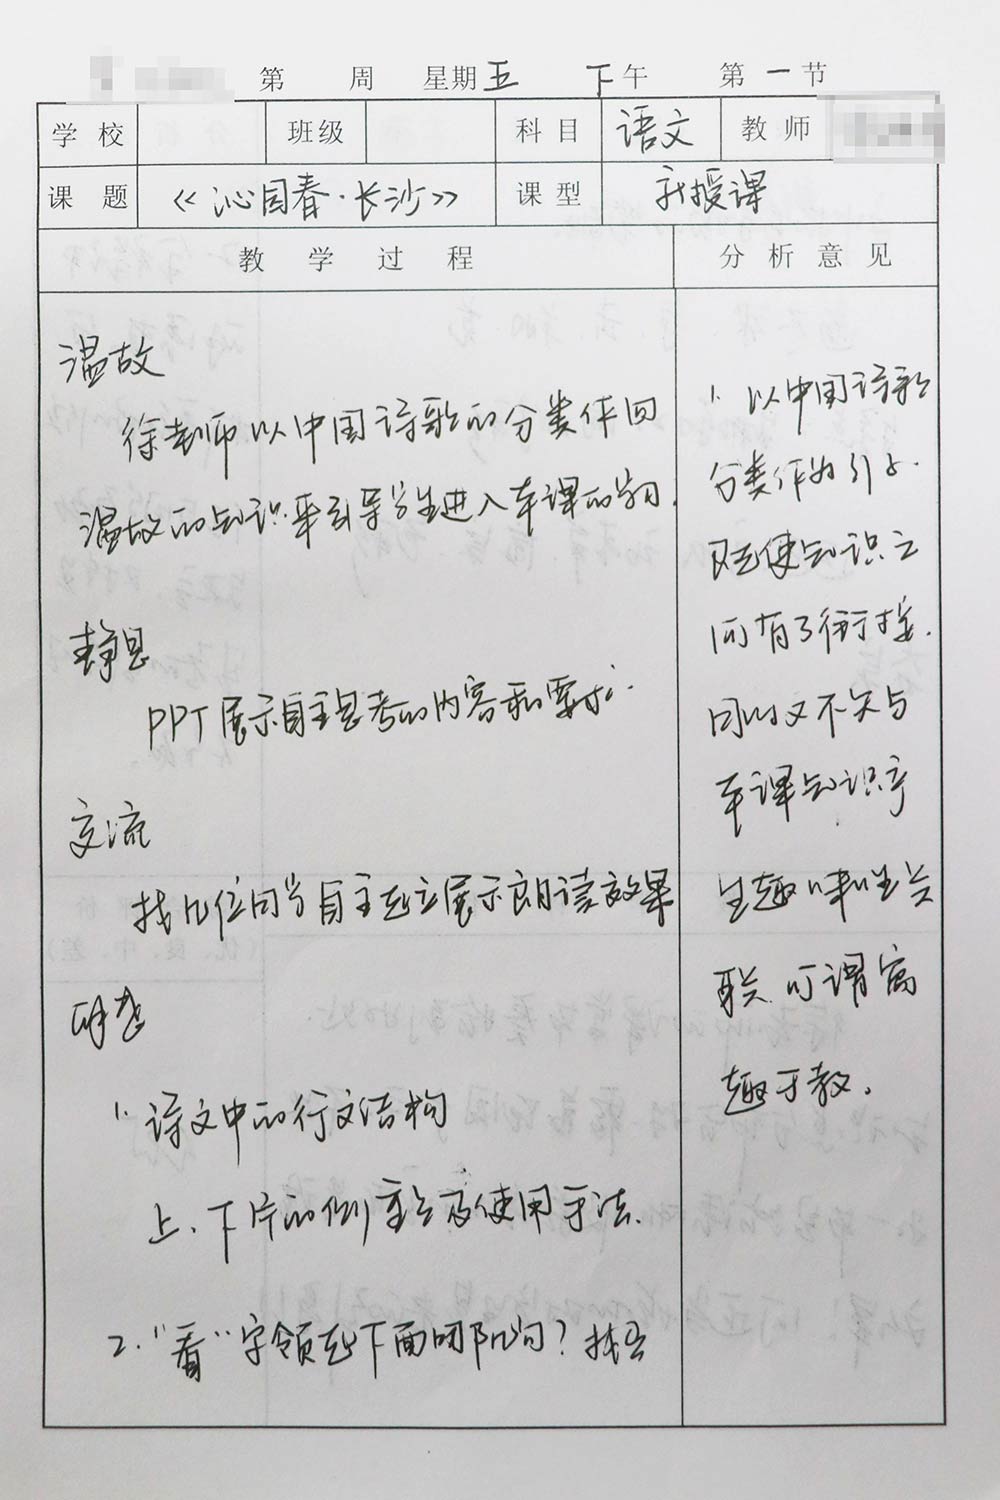 第 周 星期五 下午 第一节
学校 班级 科目 语文 教师
课题 《沁园春·长沙》 课型 新授课
教学过程 分析意见
温故
徐老师以中国诗歌的分类作回
温故的知识来引导学生进入本课的学习.
静思
PPT展示自主思考的内容和要求.
交流
找几位同学自主起立展示朗读效果
1. 诗文中的行文结构
上、下片的侧重点及使用手法.
2. "看"字领起下面哪几句? 找出
1. 以中国诗歌
分类作为引子.
既使知识之
间有了衔接.
同时又不失与
本课知识产
生趣味性关
联. 可谓寓
趣于教.